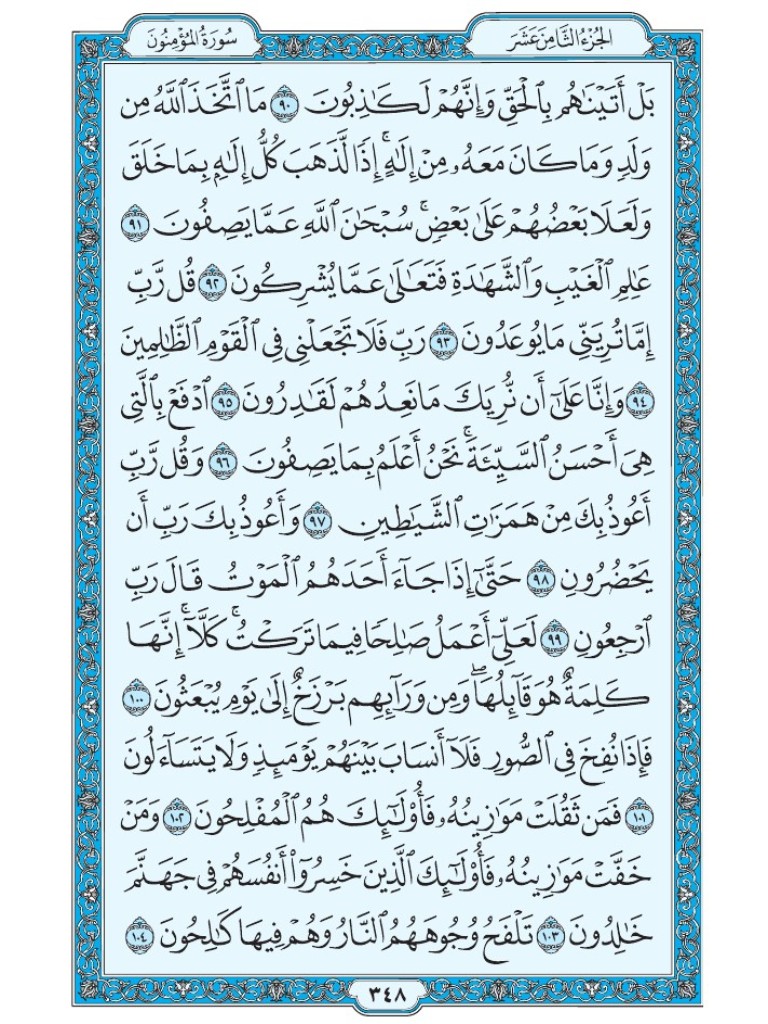 الجُزءُ الثَّامِنَ عَشَرَ
سُورَةُ المُؤْمِنُونَ
بَلۡ أَتَيۡنَٰهُم بِٱلۡحَقِّ وَإِنَّهُمۡ لَكَٰذِبُونَ ٩٠ مَا ٱتَّخَذَ ٱللَّهُ مِن
وَلَدٖ وَمَا كَانَ مَعَهُۥ مِنۡ إِلَٰهٍۚ إِذٗا لَّذَهَبَ كُلُّ إِلَٰهِۭ بِمَا خَلَقَ
وَلَعَلَا بَعۡضُهُمۡ عَلَىٰ بَعۡضٖۚ سُبۡحَٰنَ ٱللَّهِ عَمَّا يَصِفُونَ ٩١
عَٰلِمِ ٱلۡغَيۡبِ وَٱلشَّهَٰدَةِ فَتَعَٰلَىٰ عَمَّا يُشۡرِكُونَ ٩٢ قُل رَّبِّ
إِمَّا تُرِيَنِّي مَا يُوعَدُونَ ٩٣ رَبِّ فَلَا تَجۡعَلۡنِي فِي ٱلۡقَوۡمِ ٱلظَّٰلِمِينَ
٩٤ وَإِنَّا عَلَىٰٓ أَن نُّرِيَكَ مَا نَعِدُهُمۡ لَقَٰدِرُونَ ٩٥ ٱدۡفَعۡ بِٱلَّتِي
هِيَ أَحۡسَنُ ٱلسَّيِّئَةَۚ نَحۡنُ أَعۡلَمُ بِمَا يَصِفُونَ ٩٦ وَقُل رَّبِّ
أَعُوذُ بِكَ مِنۡ هَمَزَٰتِ ٱلشَّيَٰطِينِ ٩٧ وَأَعُوذُ بِكَ رَبِّ أَن
يَحۡضُرُونِ ٩٨ حَتَّىٰٓ إِذَا جَآءَ أَحَدَهُمُ ٱلۡمَوۡتُ قَالَ رَبِّ
ٱرۡجِعُونِ ٩٩ لَعَلِّيٓ أَعۡمَلُ صَٰلِحٗا فِيمَا تَرَكۡتُۚ كَلَّآۚ إِنَّهَا
كَلِمَةٌ هُوَ قَآئِلُهَاۖ وَمِن وَرَآئِهِم بَرۡزَخٌ إِلَىٰ يَوۡمِ يُبۡعَثُونَ ١٠٠
فَإِذَا نُفِخَ فِي ٱلصُّورِ فَلَآ أَنسَابَ بَيۡنَهُمۡ يَوۡمَئِذٖ وَلَا يَتَسَآءَلُونَ
١٠١ فَمَن ثَقُلَتۡ مَوَٰزِينُهُۥ فَأُوْلَٰٓئِكَ هُمُ ٱلۡمُفۡلِحُونَ ١٠٢ وَمَنۡ
خَفَّتۡ مَوَٰزِينُهُۥ فَأُوْلَٰٓئِكَ ٱلَّذِينَ خَسِرُوٓاْ أَنفُسَهُمۡ فِي جَهَنَّمَ
خَٰلِدُونَ ١٠٣ تَلۡفَحُ وُجُوهَهُمُ ٱلنَّارُ وَهُمۡ فِيهَا كَٰلِحُونَ ١٠٤
٣٤٨